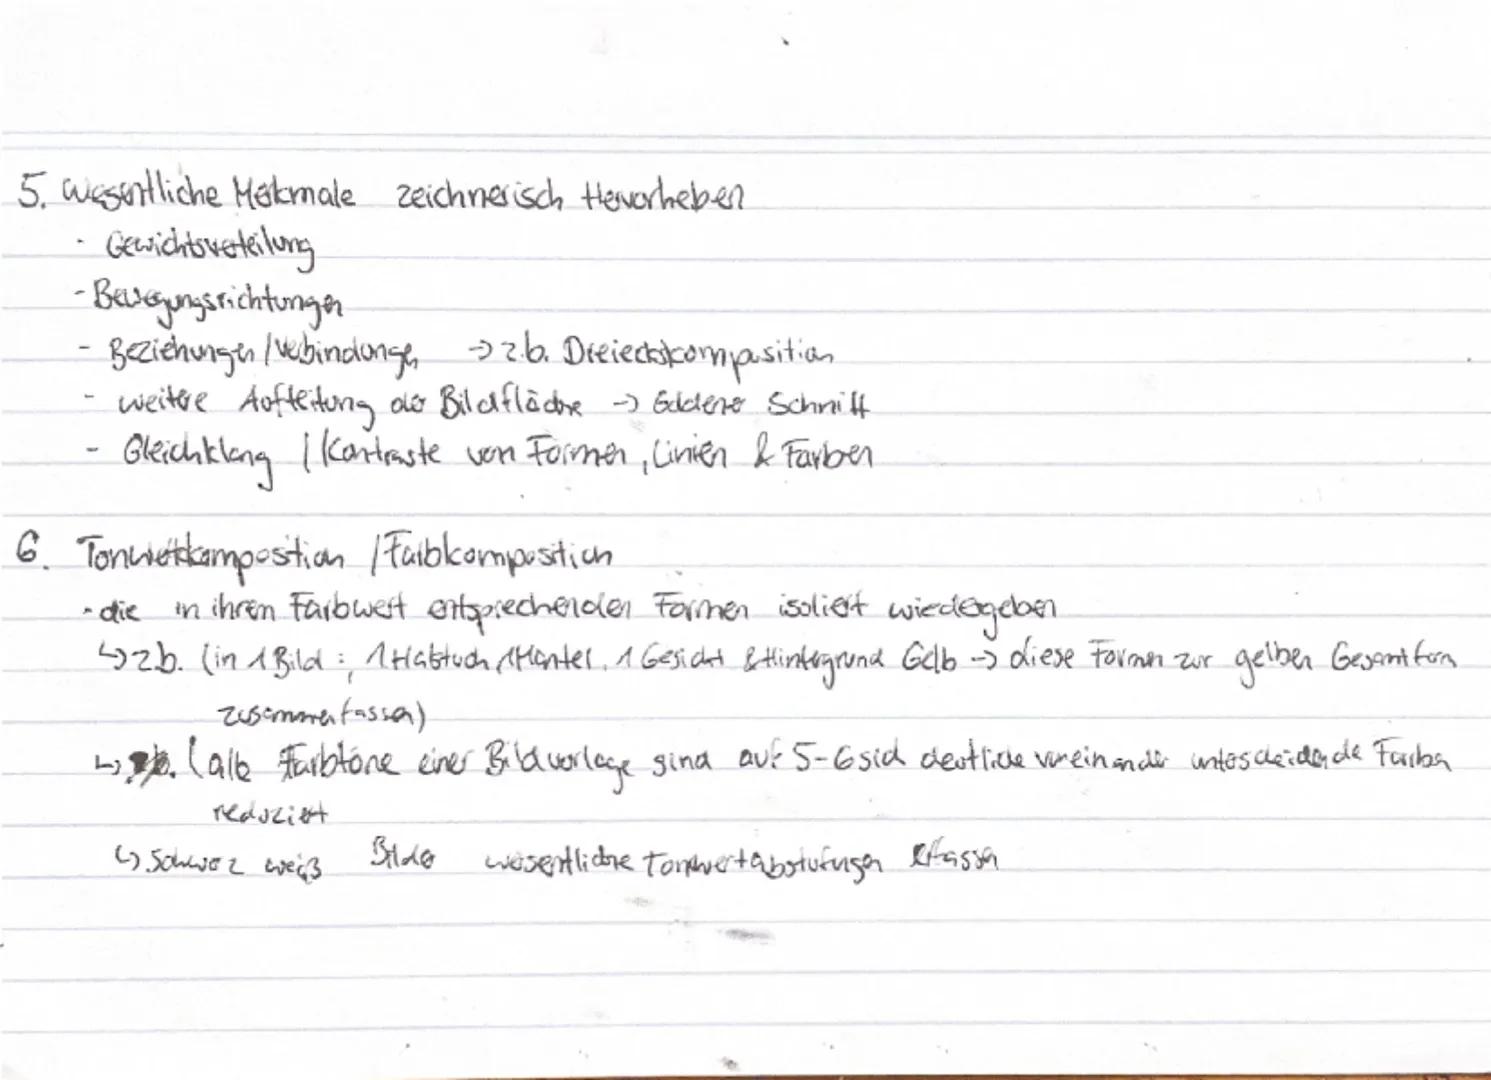 5. Wesentliche Merkmale zeichnerisch Hervorheben
- Gewichtsverteilung
- Bewegungsrichtungen
- Beziehungen / Verbindungen → z.b. Dreieckskomposition
- weitere Aufteilung der Bildfläche → Goldener Schnitt
- Gleichklang / Kontraste von Formen, Linien & Farben
6. Tonwertkomposition / Farbkomposition
- die in ihrem Farbwert entsprechenden Formen isoliert wiedergeben
↳ z.b. (in 1 Bild : 1 Halstuch, 1 Mantel, 1 Gesicht & Hintergrund Gelb → diese Formen zur gelben Gesamtform
zusammenfassen)
↳ (alle Farbtöne einer Bildvorlage sind auf 5-6 sich deutliche voneinander unterscheidende Farben
reduziert
↳ Schwarz weiß Bilder wesentliche Tonwertabstufungen erfassen